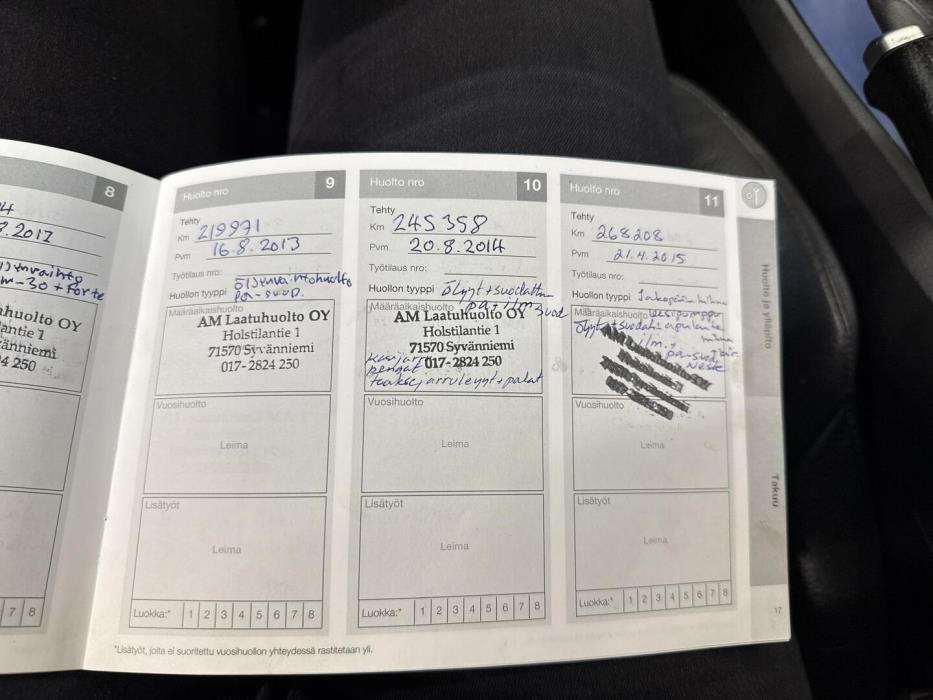 8
8.2012
huolto OY
lantie 1
änniemi
4 250
7 8
Huolto nro 9
Tehty
Km 219971
Pvm 16.8.2013
Työtilaus nro:
Huollon tyyppi
Määräaikaishuolto
AM Laatuhuolto OY
Holstilantie 1
71570 Syvänniemi
017-2824 250
Vuosihuolto
Leima
Lisätyöt
Leima
Luokka:* 1 2 3 4 5 6 7 8
Huolto nro 10
Tehty
Km 245358
Pvm 20.8.2014
Työtilaus nro:
Huollon tyyppi öljyt+suodatin
pa+ilm.suod
Määräaikaishuolto
AM Laatuhuolto OY
Holstilantie 1
71570 Syvänniemi
017-2824 250
käsijarru
taakse jarrulevyt+palat
Vuosihuolto
Leima
Lisätyöt
Leima
Luokka:* 1 2 3 4 5 6 7 8
Huolto nro 11
Tehty
Km 268208
Pvm 21.4.2015
Työtilaus nro:
Huollon tyyppi Jakopään hihna
Määräaikaishuolto vesipumppu
öljyt+suodat. apulaite
hihna
ilm.+
pa-suod
neste
Vuosihuolto
Leima
Lisätyöt
Leima
Luokka:* 1 2 3 4 5 6 7 8
Huolto ja ylläpito
Takuu
17
*Lisätyöt, joita ei suoritettu vuosihuollon yhteydessä rastitetaan yli.